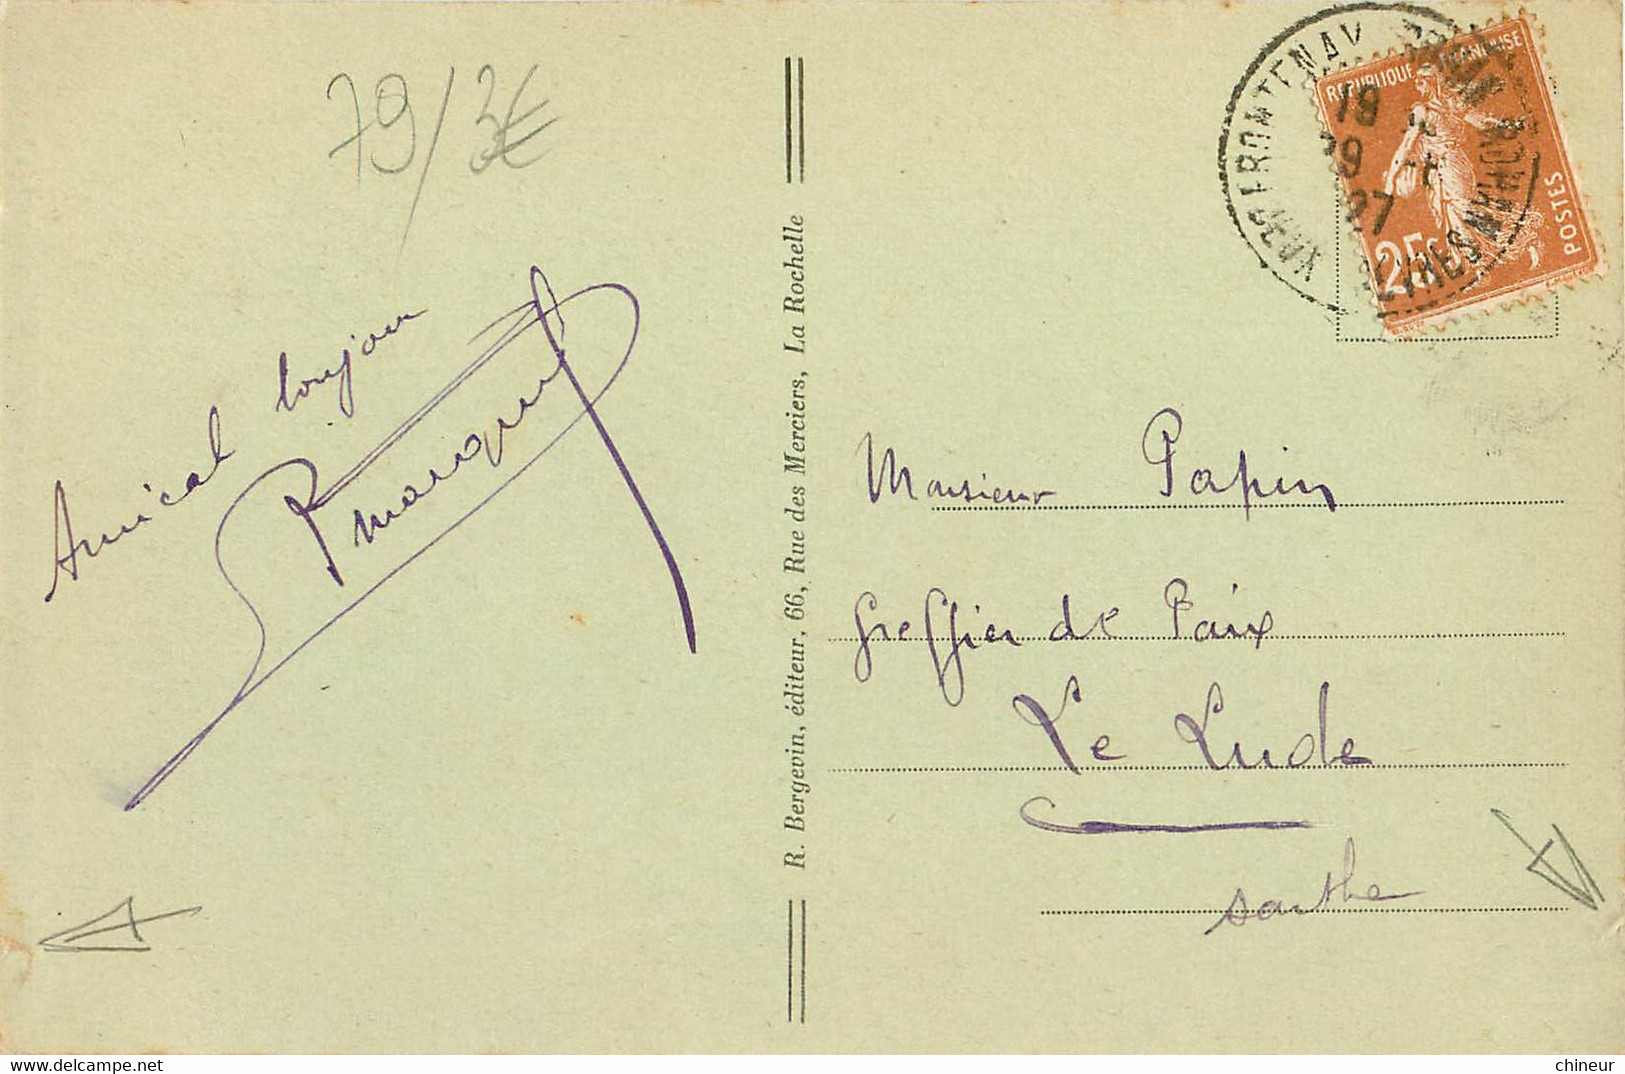 79/3€
Amical toujour
Pmarquis
R. Bergevin, éditeur, 66, Rue des Merciers, La Rochelle
FRONTENAY ROHAN ROHAN
DEUX SEVRES
19
27
REPUBLIQUE FRANÇAISE
25c
POSTES
Monsieur Papin
Greffier de Paix
Le Lude
Sarthe
https://www.delcampe.net chineur